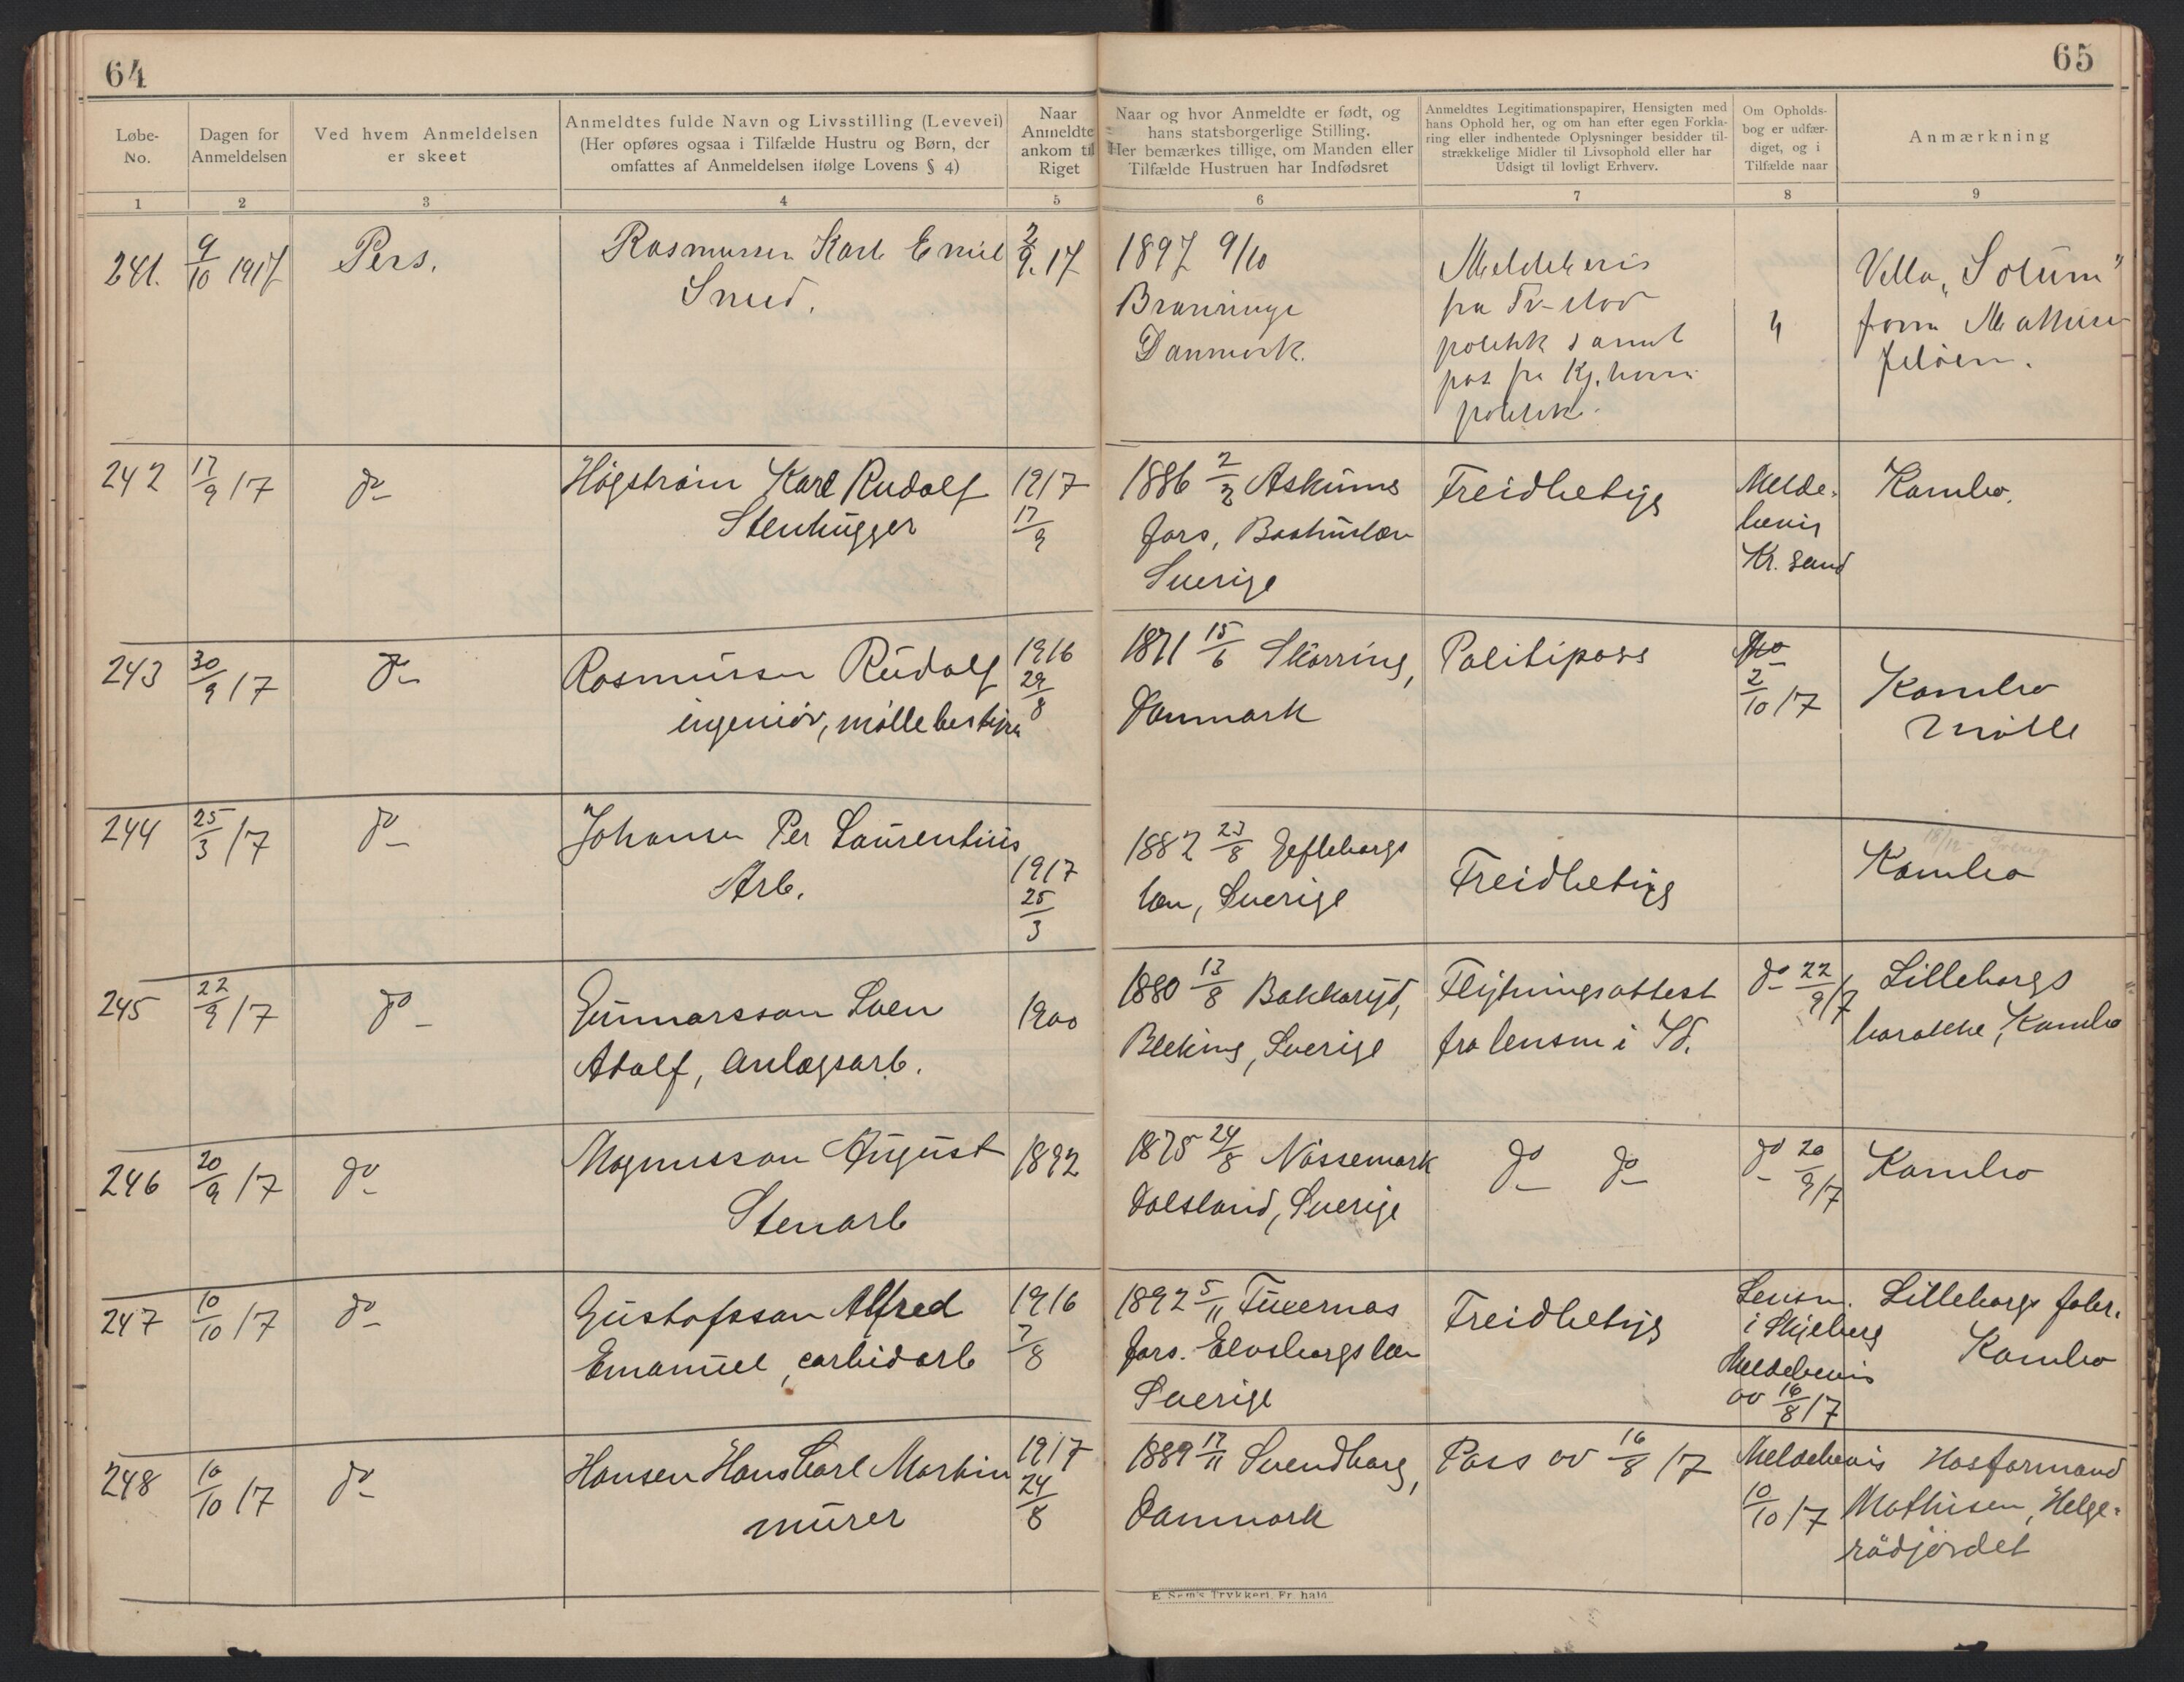 64
65
Løbe-
No.
Dagen for
Anmeldelsen
Ved hvem Anmeldelsen
er skeet
Anmeldtes fulde Navn og Livsstilling (Levevei)
(Her opføres ogsaa i Tilfælde Hustru og Børn, der
omfattes af Anmeldelsen ifølge Lovens § 4)
Naar
Anmeldte
ankom til
Riget
Naar og hvor Anmeldte er født, og
hans statsborgerlige Stilling.
Her bemærkes tillige, om Manden eller
Tilfælde Hustruen har Indfødsret
Anmeldtes Legitimationspapirer, Hensigten med
hans Ophold her, og om han efter egen Forkla-
ring eller indhentede Oplysninger besidder til-
strækkelige Midler til Livsophold eller har
Udsigt til lovligt Erhverv.
Om Opholds-
bog er udfær-
diget, og i
Tilfælde naar
Anmærkning
1 2 3 4 5 6 7 8 9
241. 9/10 1917 Pers. Rasmussen Karl Emil 2/9. 17
Smed.
1897 9/10
Danmark.
Meldebevis
politik samt
politik.
Villa „Solum"
242 17/9 17 do Høgstrøm Karl Rudolf
Stenhugger
1917
17/9
1886 2/3 Askums
fors, Bohuslæn
Sverige
Freidhetigs
Melde-
bevis
Kr. sand
Kambo.
243 30/9 17 do Rasmussen Rudolf
ingeniør, møllebestyrer
1916
29/8
1871 15/6 Skørring,
Danmark
Politipass
2/10 17
Kambo
Mølle
244 25/3 17 do Johansen Per Laurentius
Arb.
1917
25/3
1882 23/8 Gefleborgs
læn, Sverige
Freidhetigs
Kambo
245 22/9 17 do Gunnarsson Sven
Adolf, anlægsarb.
1900
1880 13/8 Bakkaryd,
Bleking, Sverige
Flytningsattest
fra lensm i Id.
do 22/9 17
Lilleborgs
barakke, Kambo
246 20/9 17 do Magnusson August
Stenarb
1892
1875 24/8 Nössemark
Dalsland, Sverige
do do
do 20/9 17
Kambo
247 10/10 17 do Gustafsson Alfred
Emanuel, carbidarb
1916
7/8
1892 5/11
fors. Elvsborgs læn
Sverige
Freidhetigs
Lensm.
i Skjeberg
Meldebevis
av 16/8 17
Lilleborgs fabr.
Kambo
248 10/10 17 do Hansen Hans Carl Martin
murer
1917
24/8
1889 17/11 Svendborg,
Danmark
Pass av 16/8 17
Meldebevis
10/10 17
Hos formand
Mathisen, Helge-
rødjordet
E. Sem's Trykkeri, Fr.hald